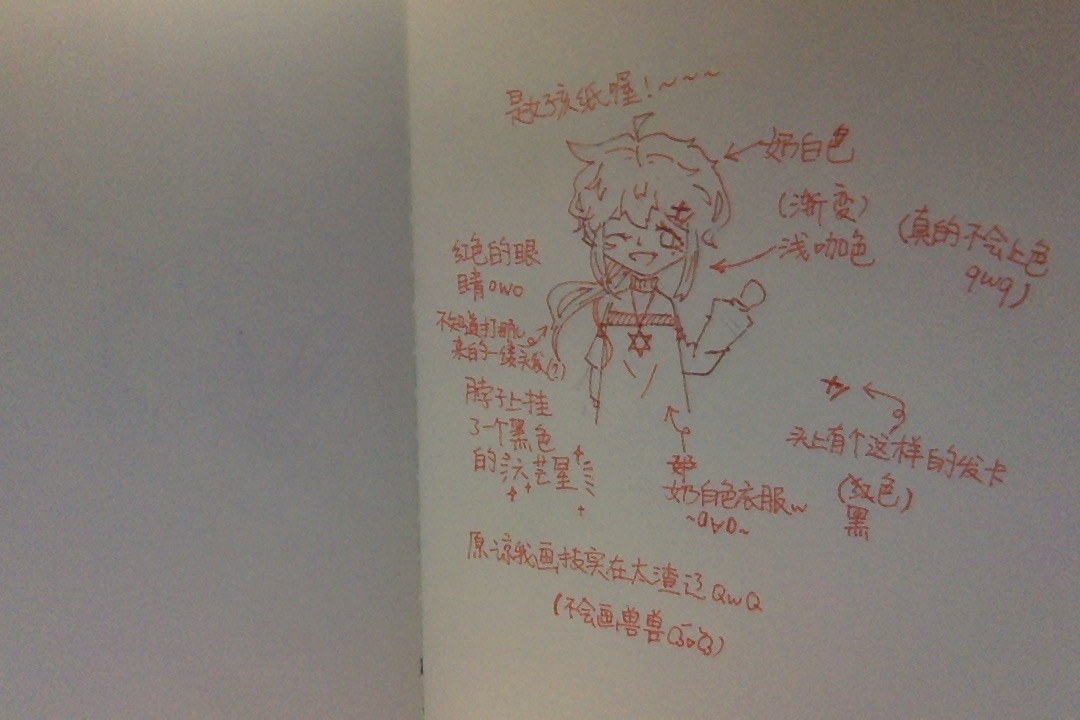 是女孩纸喔！~~~
奶白色
(渐变)
浅咖色
(真的不会上色
qwq)
红色的眼
睛owo
不知道打哪儿
来的一缕头发(?)
脖子上挂
了一个黑色
的六芒星
头上有个这样的发卡
(红色)
黑
奶白色衣服w
~OvO~
原谅我画技实在太渣辽QwQ
(不会画兽兽